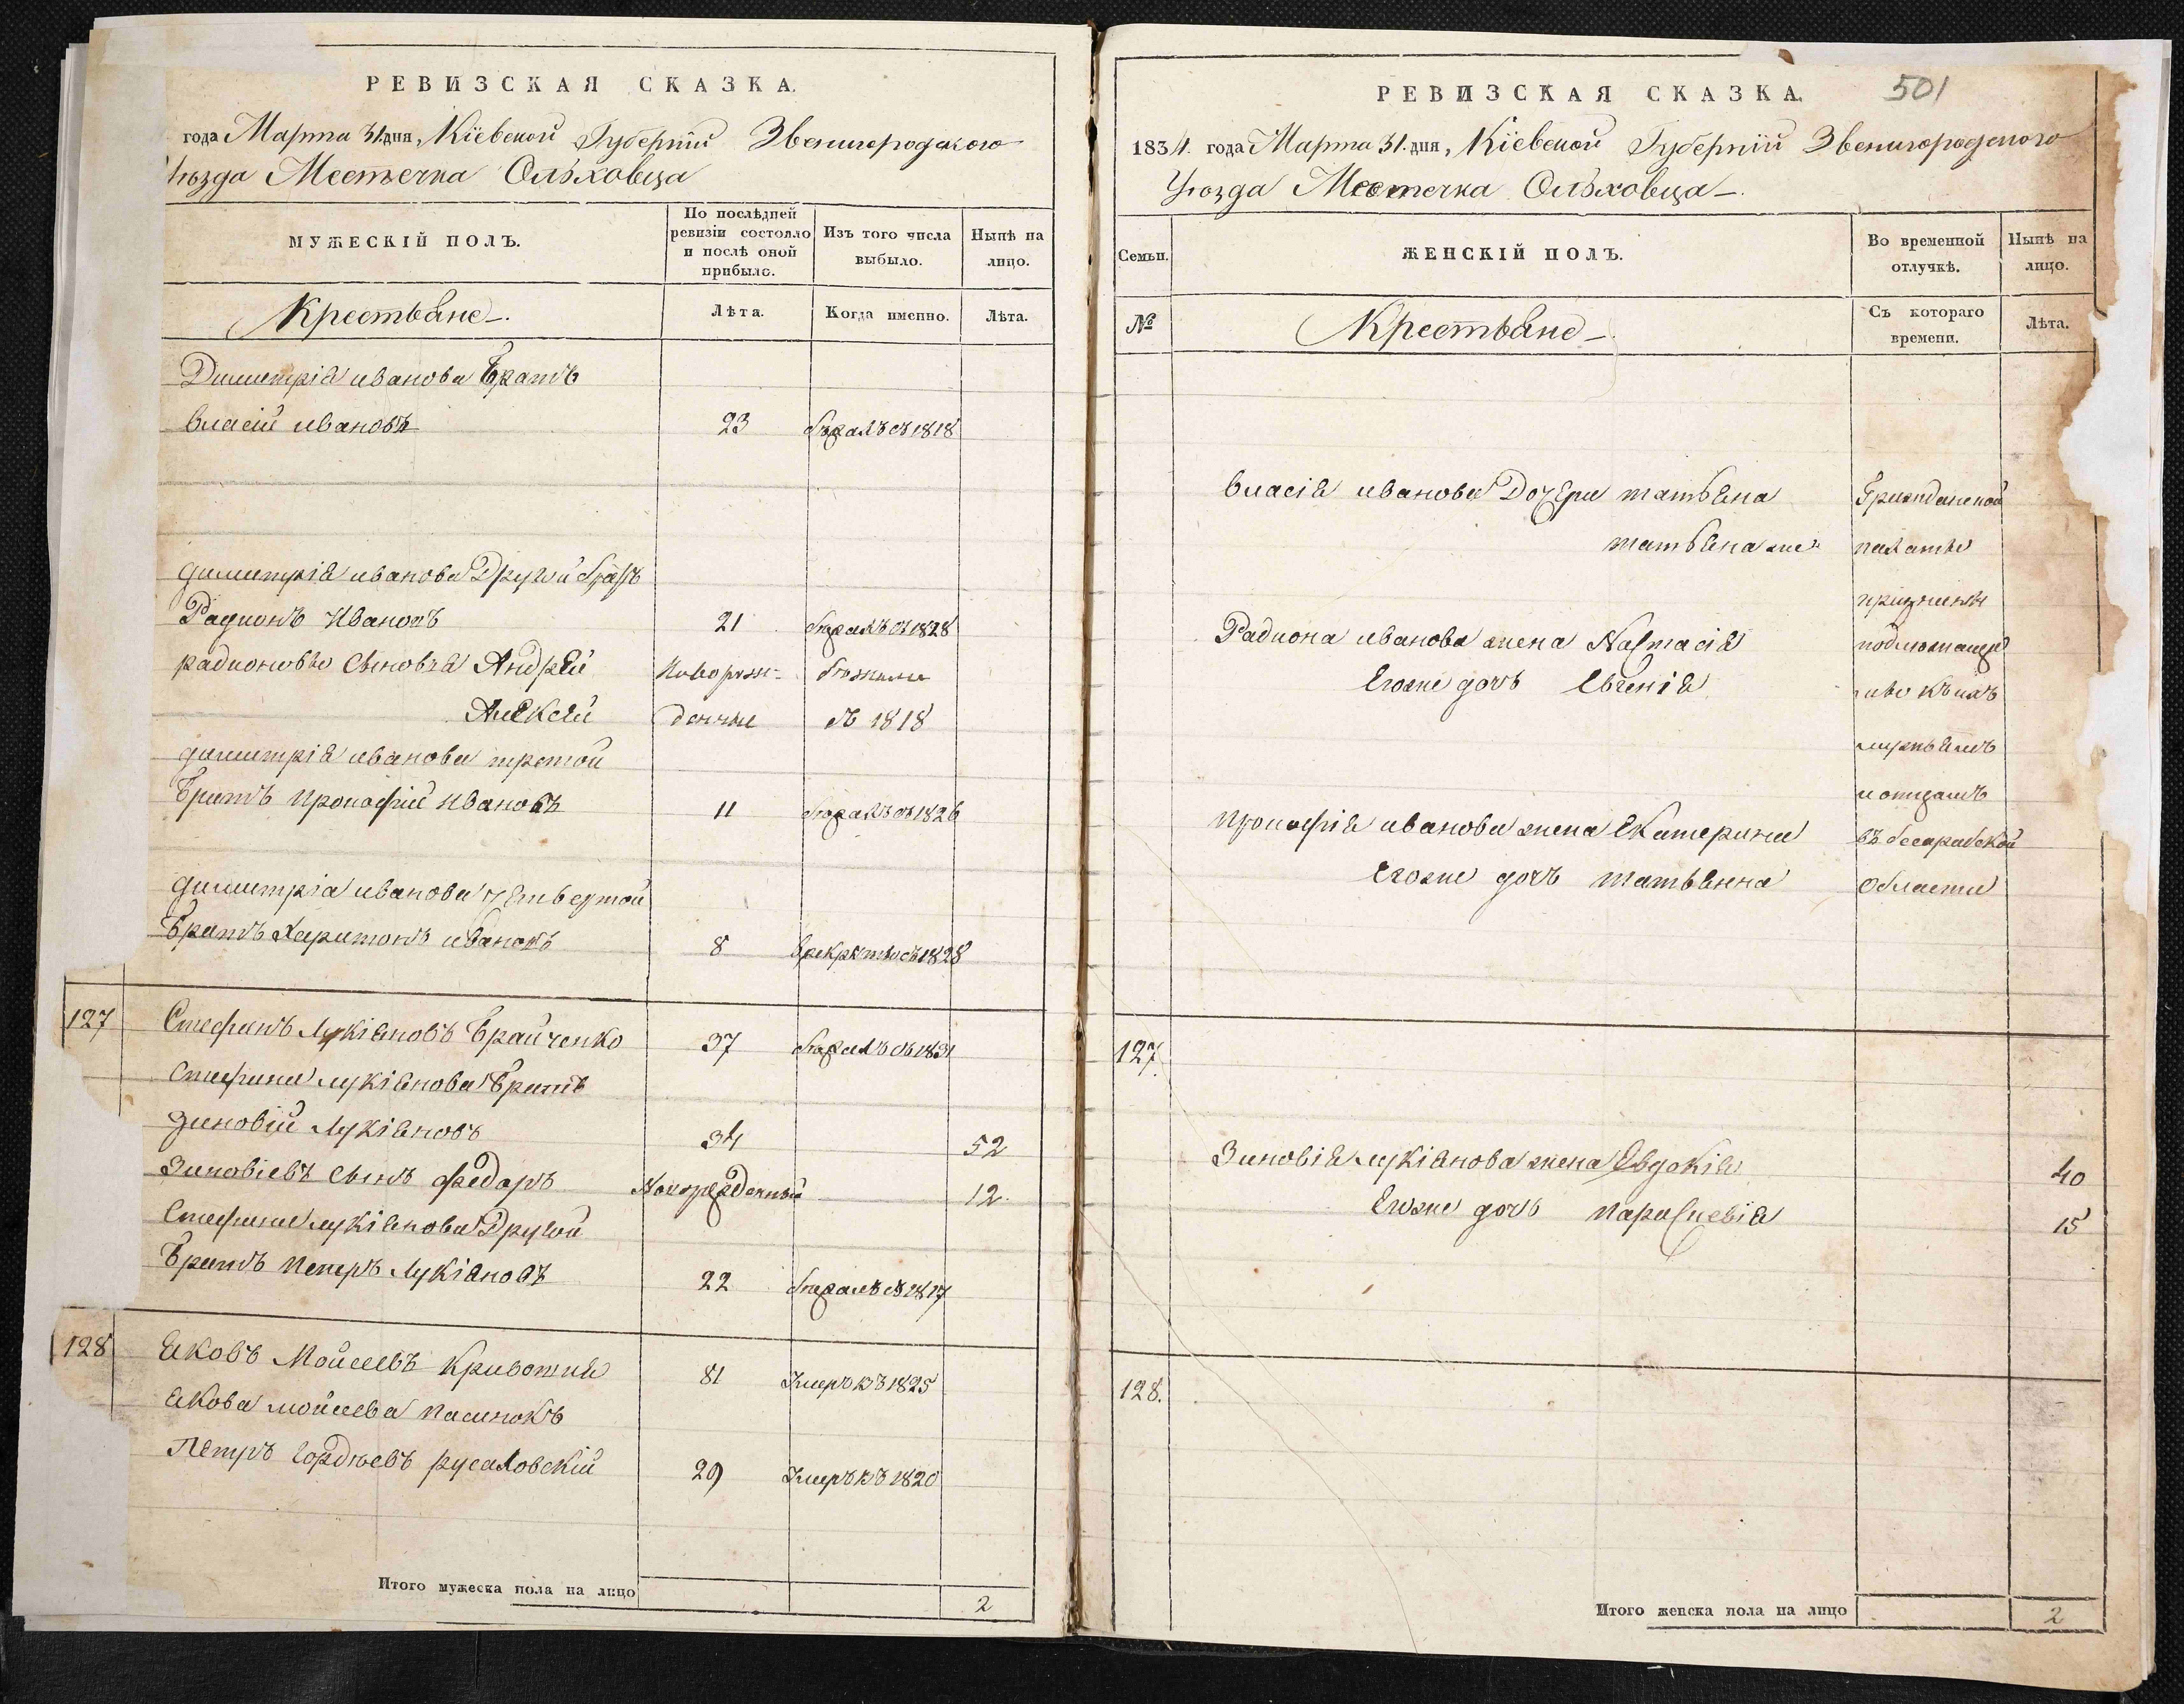 РЕВИЗСКАЯ СКАЗКА.
года Марта 31. дня, Кіевской Губерніи Звенигородскаго
ѣзда Местечка Ольховца
МУЖЕСКІЙ ПОЛЪ.
По послѣдней ревизіи состояло и послѣ оной прибыло.
Изъ того числа выбыло.
Нынѣ на лицо.
Крестьяне
Лѣта.
Когда именно.
Лѣта.
Димитрія иванова Братъ
Власій ивановъ 23 бѣжалъ въ 1818
димитрія иванова Другий братъ
Радионъ Ивановъ 21 бѣжалъ въ 1828
радионовы сыновья Андрей Новорож- бежали
Алексей денные въ 1818
димитрія иванова третой
Братъ прокофій Ивановъ 11 бѣжалъ въ 1826
димитрія иванова четвертой
Братъ Харитонъ ивановъ 8 врекруты въ 1828
127 Стефанъ Лукіяновъ Брайченко 37 бѣжалъ въ 1831
Стефана лукіянова Братъ
зиновій Лукіяновъ 34 52
Зиновіевъ сынъ федоръ Новорожденный 12
Стефана лукіянова Другой
Братъ петеръ Лукіяновъ 22 бѣжалъ въ 1817
128 Яковъ Мойсеевъ 81 Умеръ въ 1825
Якова мойсеева пасинокъ
Петръ гордѣевъ русаловскій 29 Умеръ въ 1820
Итого мужеска пола на лицо 2
501
РЕВИЗСКАЯ СКАЗКА.
1834. года Марта 31. дня, Кіевской Губерніи Звенигородского
Уѣзда Местечка Ольховца
Семьи.
ЖЕНСКІЙ ПОЛЪ.
Во временной отлучкѣ.
Нынѣ на лицо.
№
Крестьяне
Съ котораго времени.
Лѣта.
Власія иванова Дочери татьяна Гражданской
татьяна же палаты
Радиона иванова жена Настасія
Егоже дочь Евгенія
прокофія иванова жена Екатерина въ бесарабской
Егоже дочь татьянна области
127.
Зиновія лукіянова жена Евдокія 40
Егоже дочь параскевія 15
128.
Итого женска пола на лицо 2